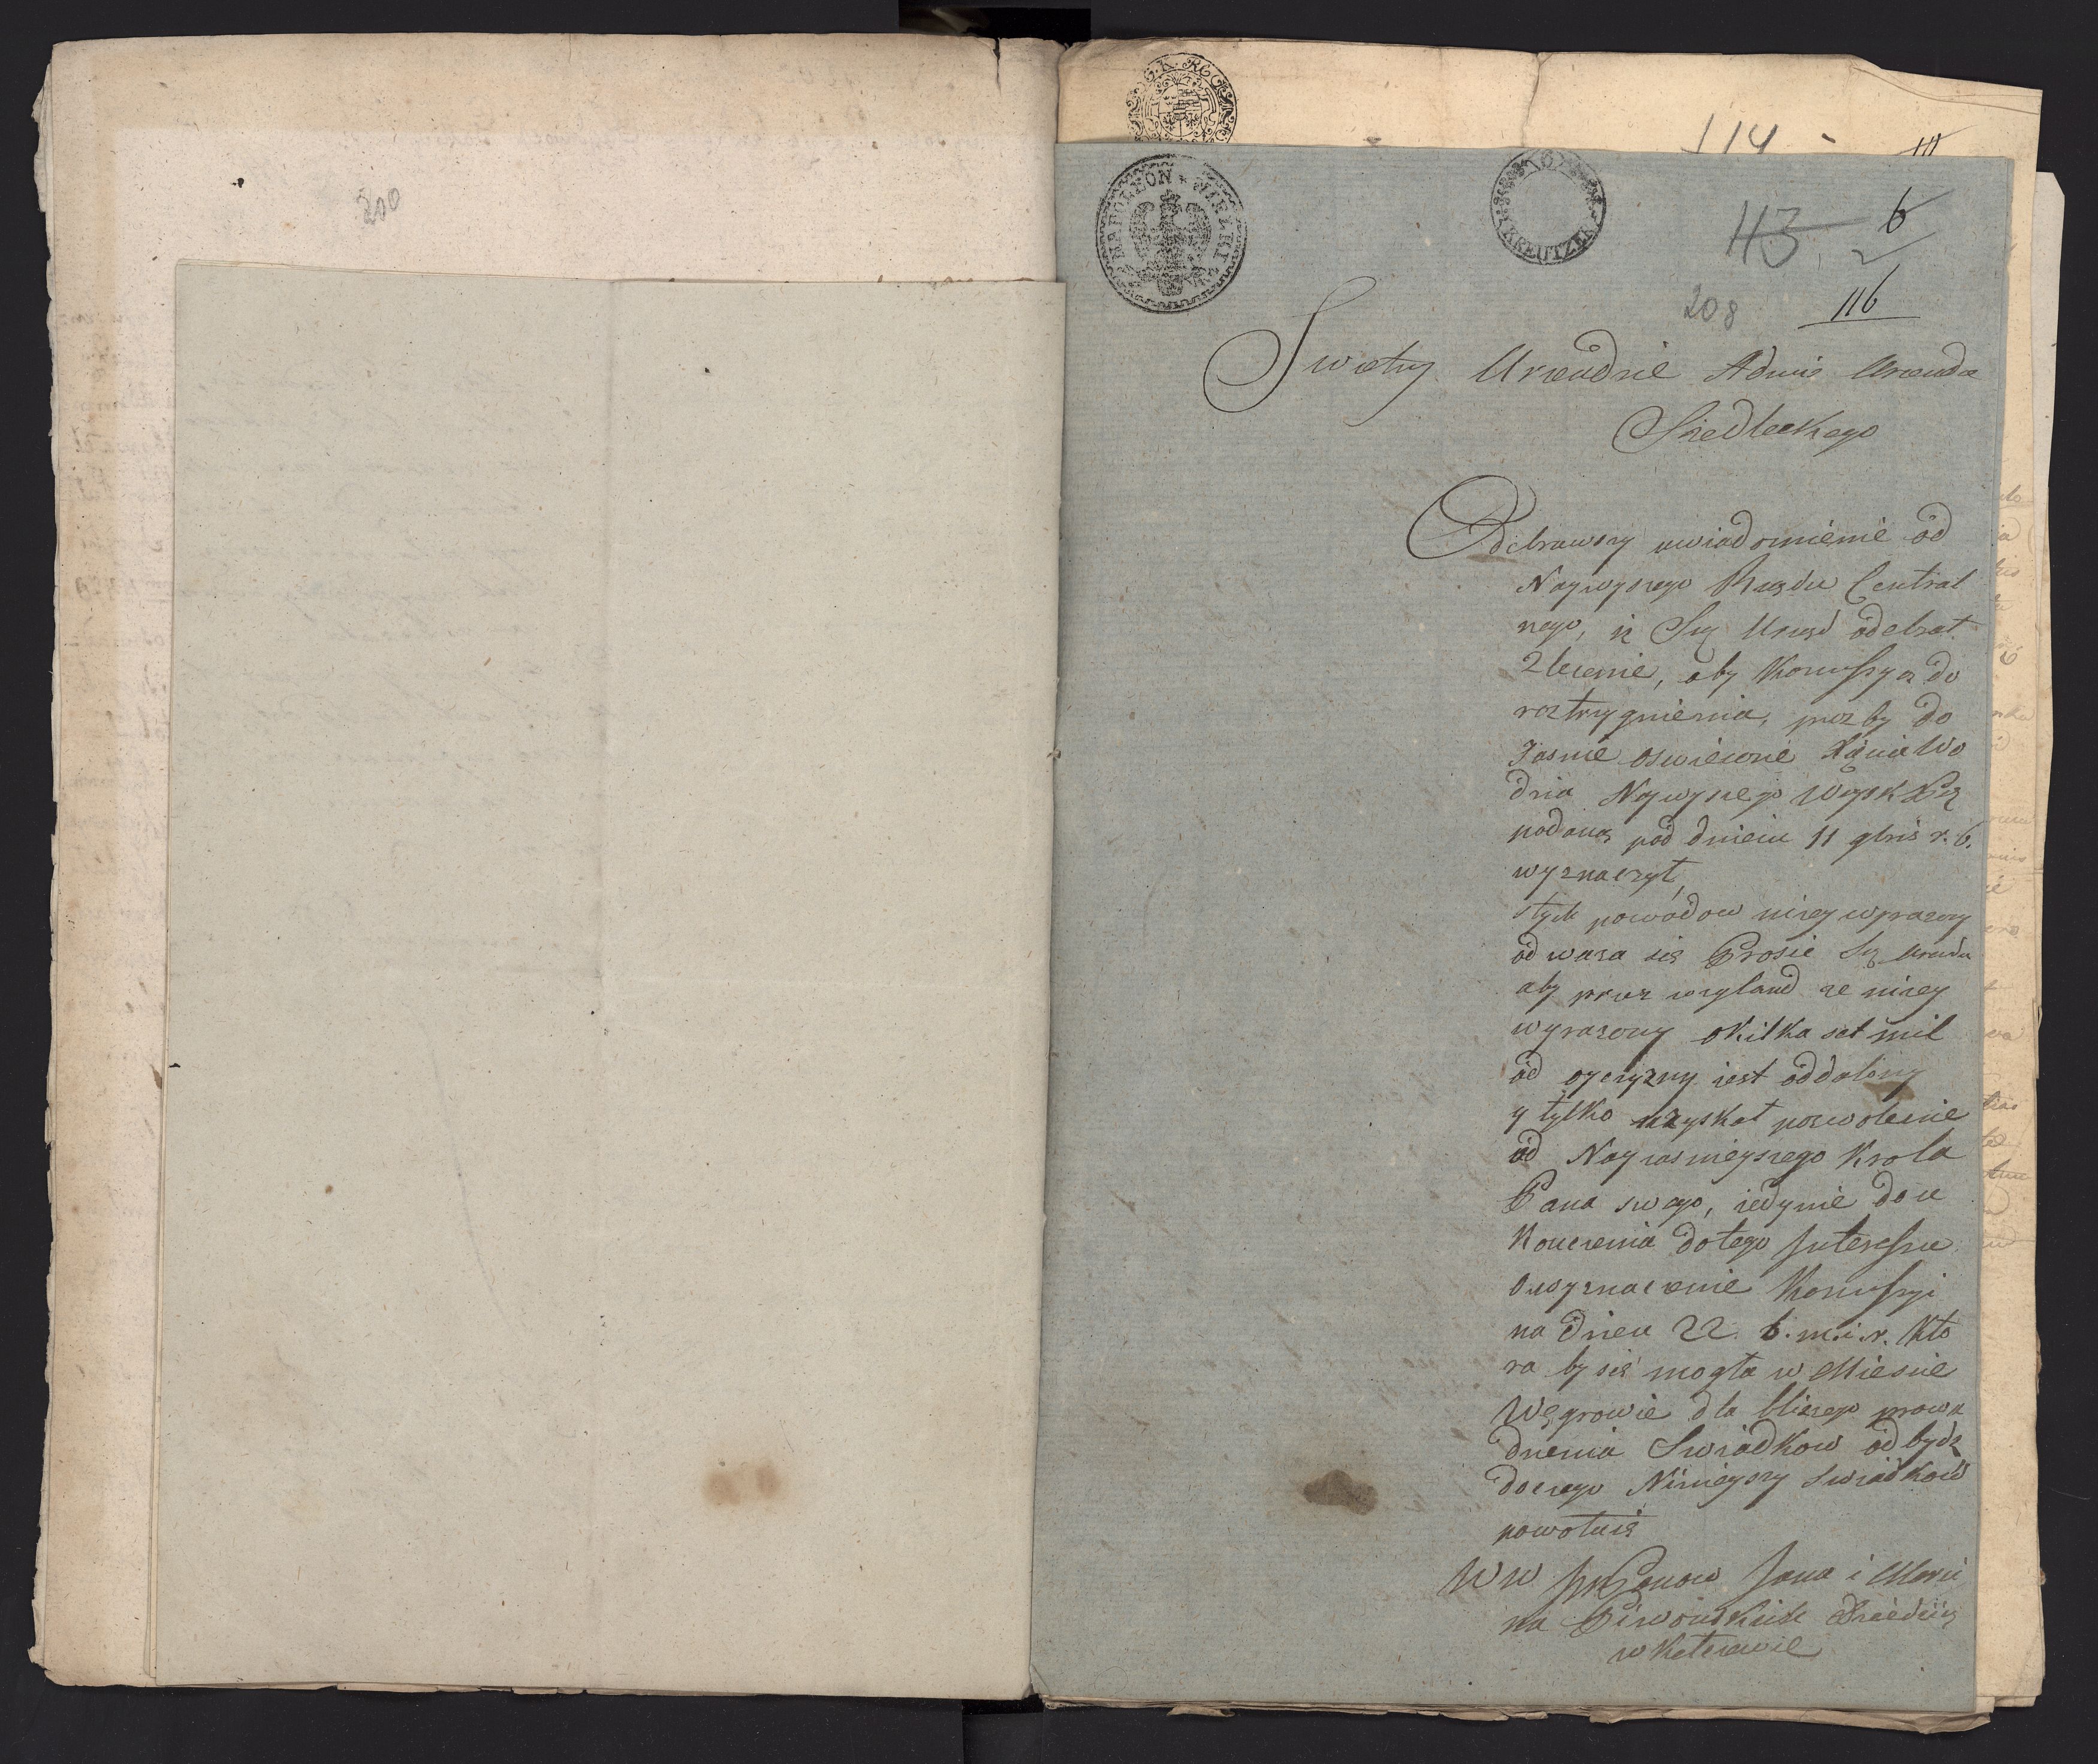 200
G. K. RE
114
NAPOLEON WIELKI
6
KREUTZER
113
6
2
208
116
Swietny Urzendzie Admi Urzendzie
Siedleckego
Odebrawszy uwiadomienie od
Naywyszego Rządu Central
nego, iz Sw Urząd odebrat
Zlecenie, aby Komissyą do
roztrzygnienia, prozby do
Jasnie oswiecone Xięcia Wo
dza Naywyszego Woysk
podaną pod dniem 11 9bris r. b.
wyznaczyt,
stych powodow nizey wyrazony
odwaza się Prosic Sw Urzendu
aby przez wzgland ze nizey
wyrazony okilka set mil
od oyczyzny iest oddalony
y tylko uzyskat pozwolenie
od Nayiasnieyszego Krola
Pana swego, iedynie do u
konczenia dotego Interessu
owyznaczenie Komissyi
na dzien 22. b. m. i r. Kto
ra by się mogta w Miescie
Węgrowie dla blizszego prowa
dzenia Swiadkow odbydz
doczego Ninieyszy Swiadkow
powotuie
WW Panow Jana i Marci
na
w